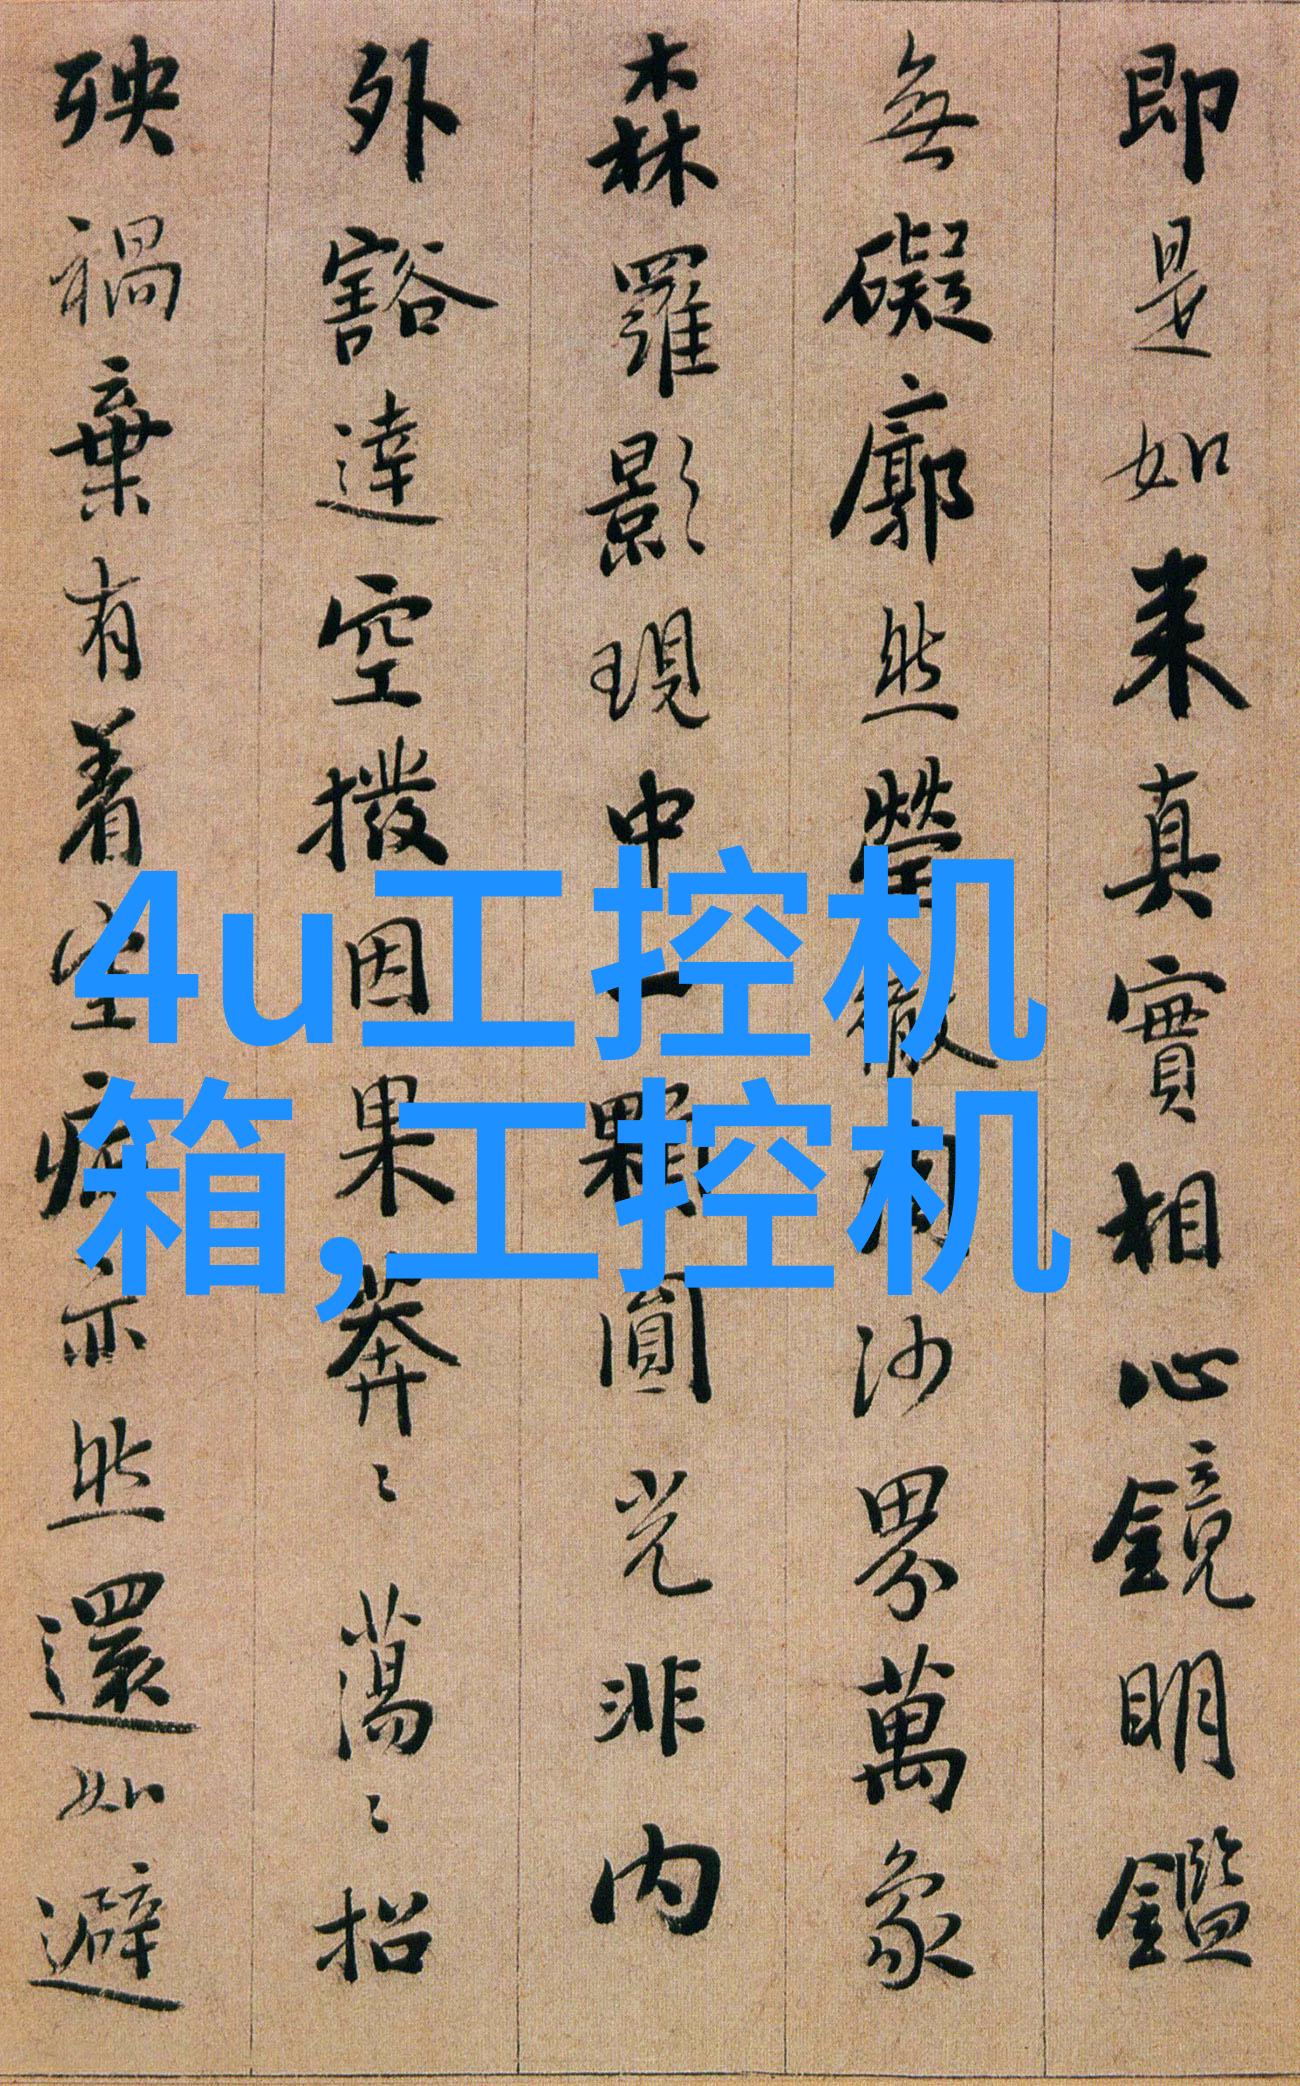 即是如来真實相心鏡明鑑
無礙廓然瑩徹周沙界萬象
森羅影現中一顆圓光非内
外豁達空撥因果莽〻蕩〻招
殃禍棄有着空病亦然還如避
4u工控机
箱,工控机